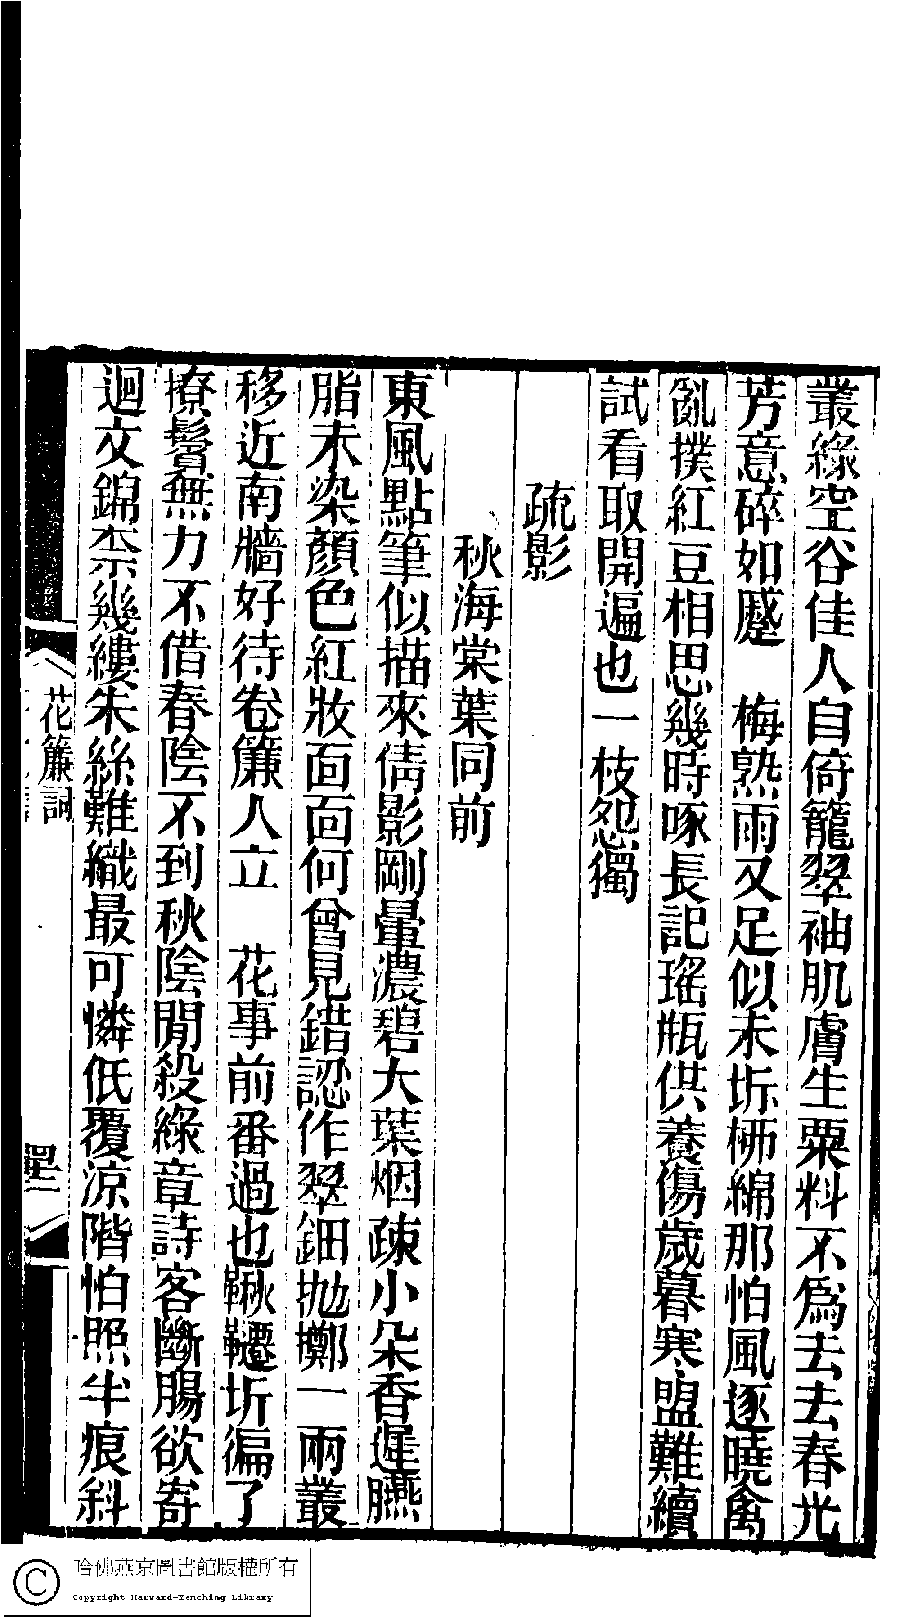 叢綠空谷佳人自倚籠翠袖肌膚生粟料不爲去去春光
芳意碎如蹙　梅熟雨又足似未坼柳綿那怕風逐曉禽
亂撲紅豆相思幾時啄長記瑤瓶供養傷歲暮寒盟難續
試看取開遍也一枝怨獨
疏影
秋海棠葉同前
東風點筆似描來倩影剛暈濃碧大葉烟疎小朵香遲臙
脂未染顏色紅妝面面何曾見錯認作翠鈿拋擲一兩叢
移近南牆好待卷簾人立　花事前番過也鞦韆坼徧了
撩鬢無力不借春陰不到秋陰閒殺綠章詩客斷腸欲寄
迴文錦柰幾縷朱絲難織最可憐低覆涼階怕照半痕斜
花簾詞
哈佛燕京圖書館版權所有
Copyright Harvard-Yenching Library